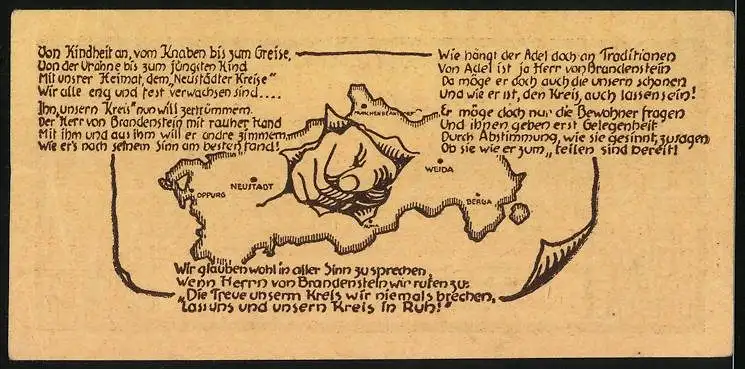 Von Kindheit an, vom Knaben bis zum Greise,
Von der Urahne bis zum jüngsten Kind
Mit unsrer Heimat, dem „Neustädter Kreise"
Wir alle eng und fest verwachsen sind....
Ihn, unsern Kreis" nun will zertrümmern
Der Herr von Brandenstein mit rauher Hand
Mit ihm und aus ihm will er andre zimmern,
Wie er's nach seinem Sinn am besten fand!
Wie hängt der Adel doch an Traditionen
Von Adel ist ja Herr von Brandenstein
Da möge er doch auch die unsern schonen
Und wie er ist, den Kreis, auch lassen sein!
Er möge doch nur die Bewohner fragen
Und ihnen geben erst Gelegenheit
Durch Abstimmung, wie sie gesinnt, zu sagen,
Ob sie wie er zum „teilen sind bereit!
OPPURG
NEUSTADT
WEIDA
BERGA
Wir glauben wohl in aller Sinn zu sprechen,
Wenn Herrn von Brandenstein wir rufen zu:
„Die Treue unserm Kreis wir niemals brechen,
Lass uns und unsern Kreis in Ruh!"